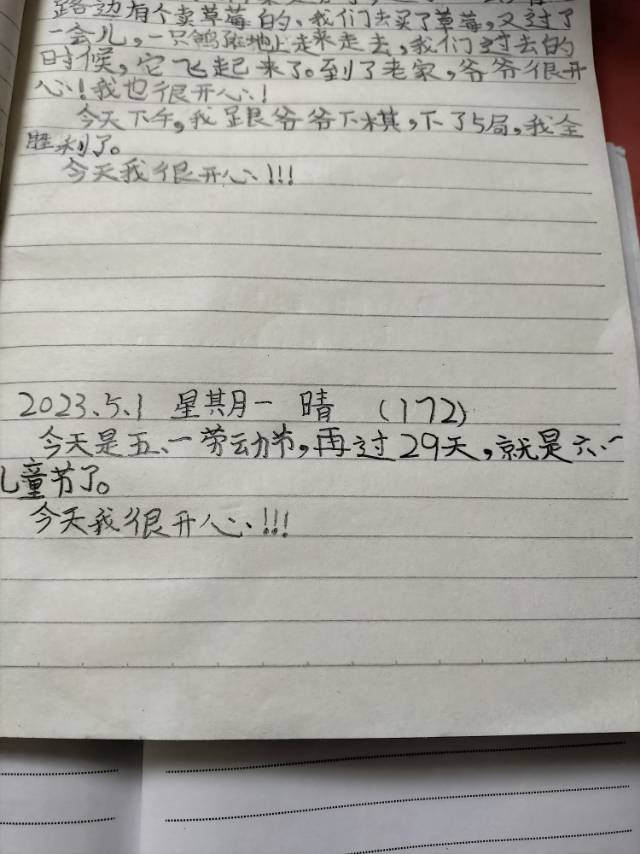 路边有个卖草莓的,我们去买了草莓,又过了
一会儿,一只鸽在地上走来走去,我们过去的
时候,它飞起来了。到了老家,爷爷很开
心!我也很开心!
今天下午,我跟爷爷下棋,下了5局,我全
胜利了。
今天我很开心!!!
2023.5.1 星期一 晴 (172)
今天是五一劳动节,再过29天,就是六一
儿童节了。
今天我很开心!!!